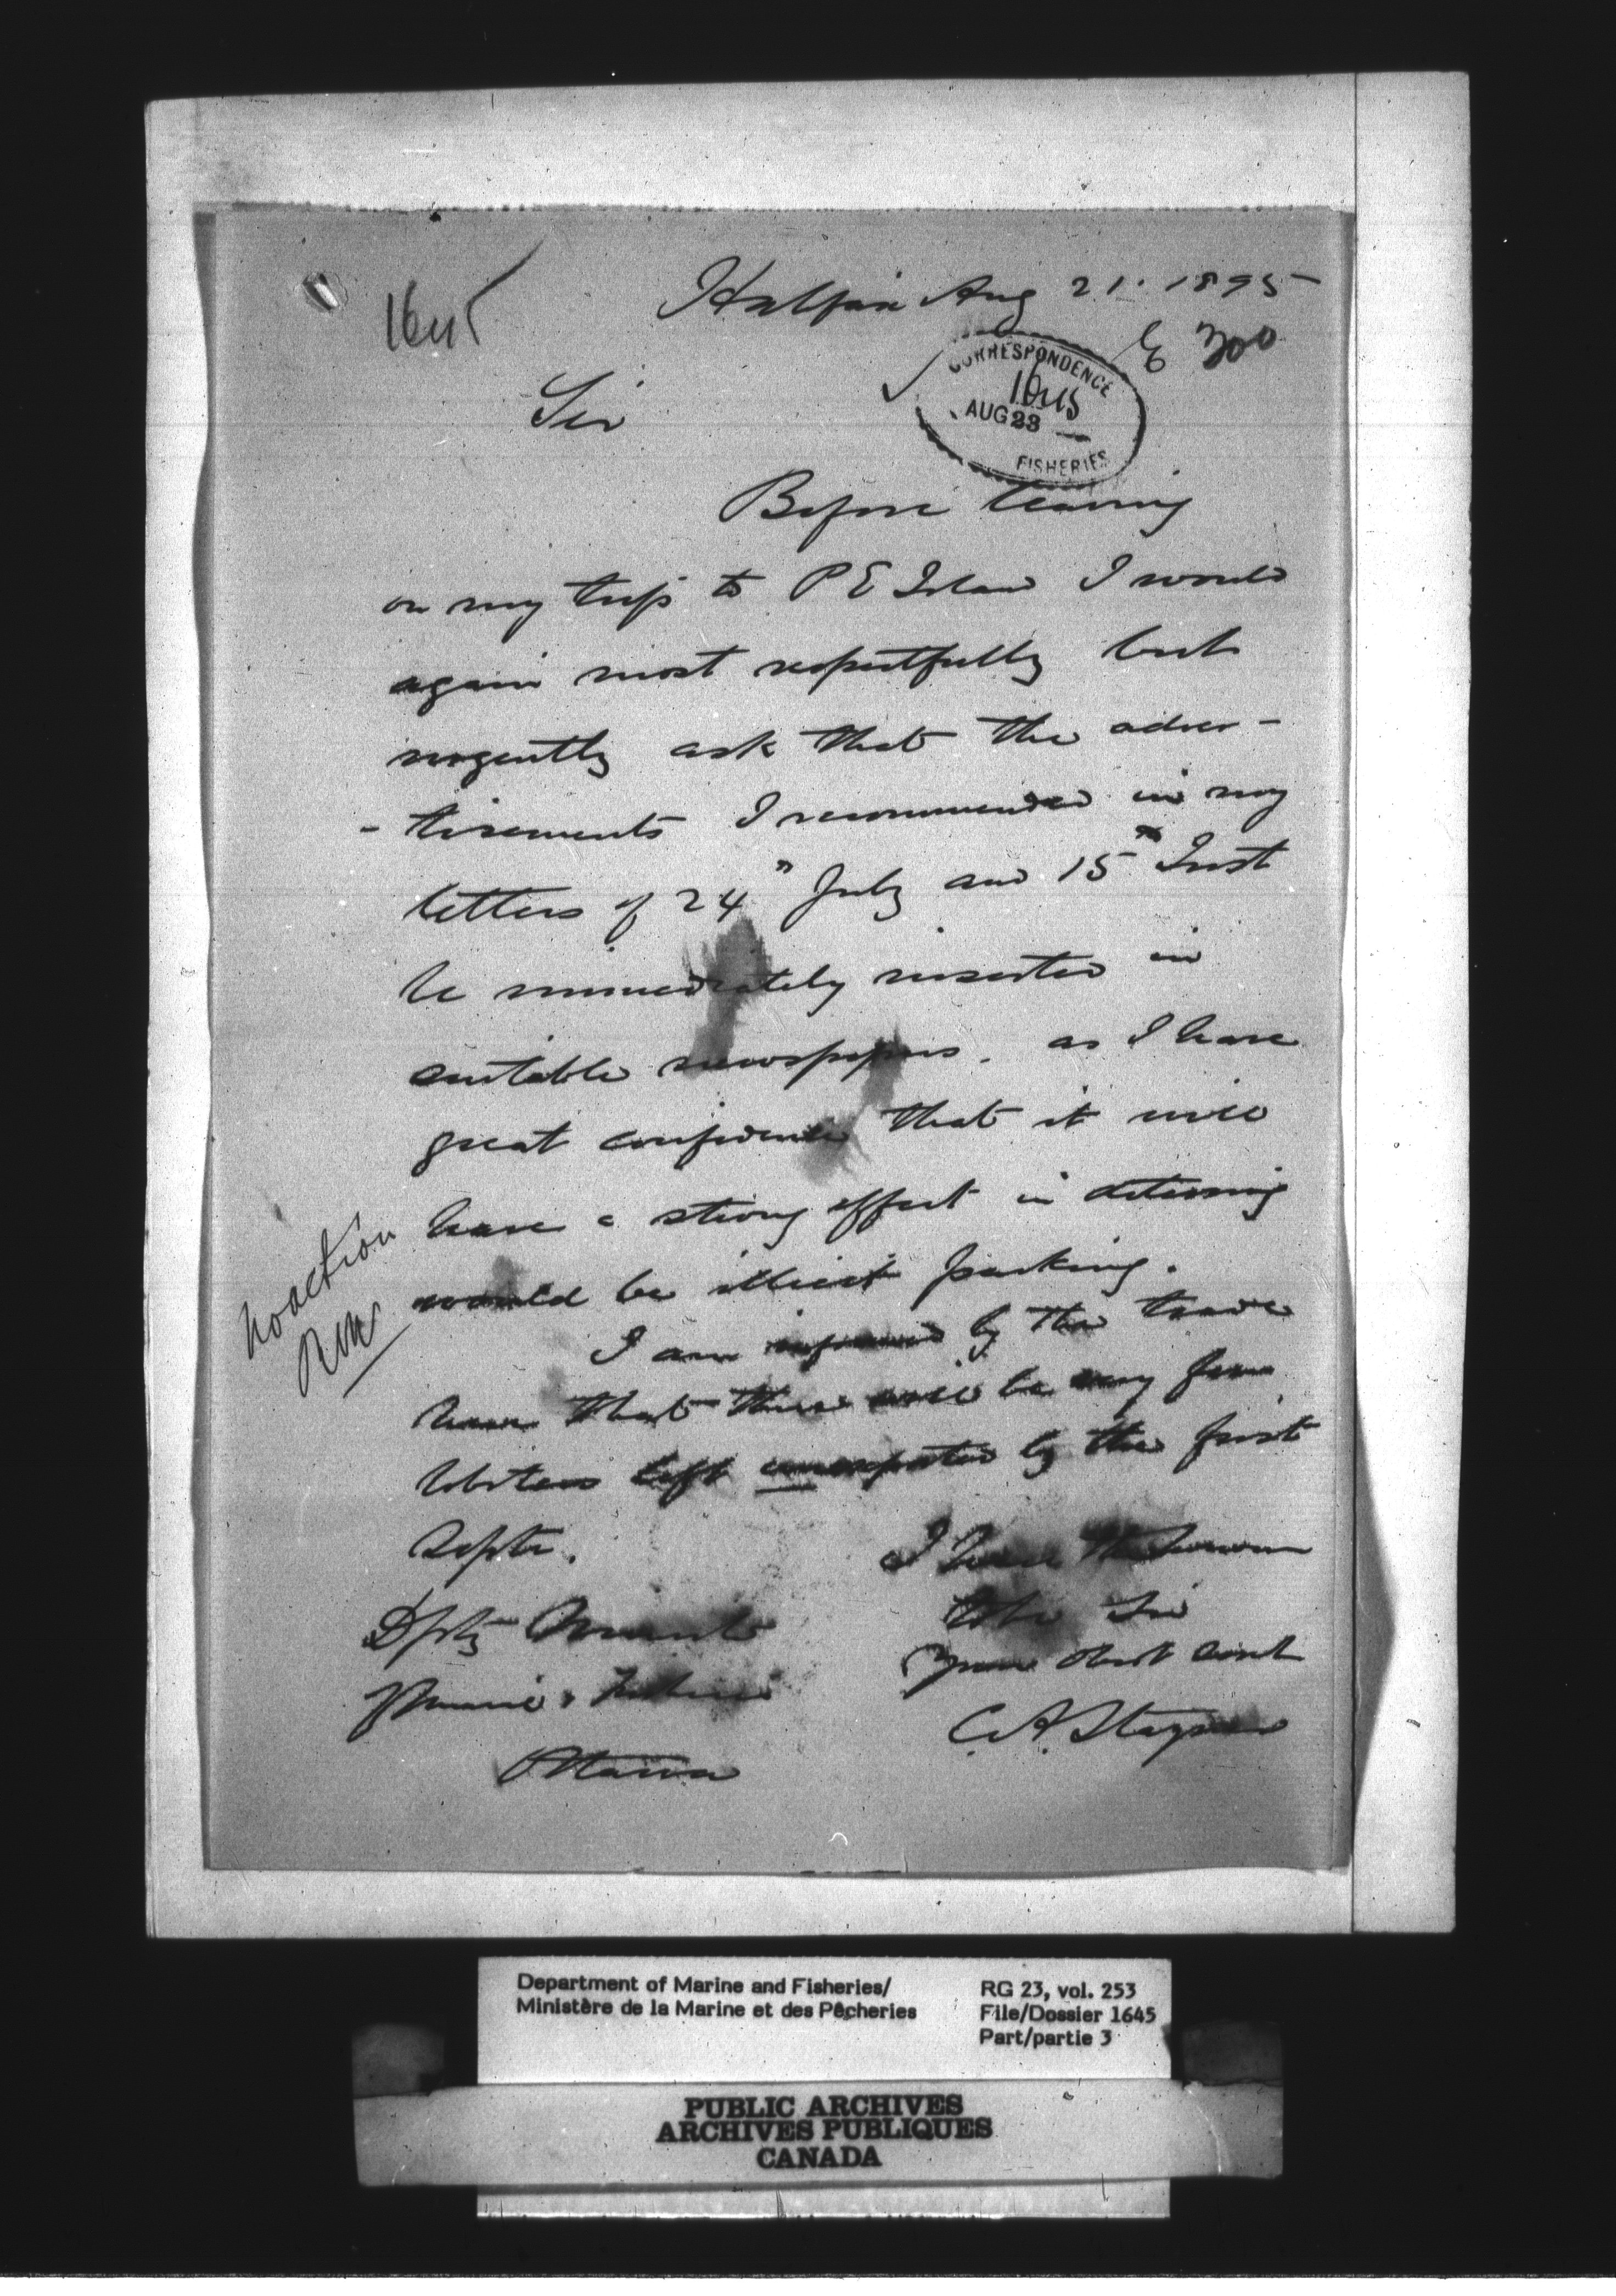 1645
Halifax Aug 21. 1895
E 300
CORRESPONDENCE
1645
AUG 23
FISHERIES
Sir
Before leaving
on my trip to P E Island I would
again most respectfully but
urgently ask that the adver-
-tisements I recommended in my
letters of 24" July and 15th Inst
be immediately inserted in
suitable newspapers. as I have
great confidence that it will
have a strong effect in deterring
would be illicit packing.
No action
I am informed by the trade
here that there will be very few
lobsters left unexported by the first
Septr.
I have the honour
to be Sir
Your obdt servt
C. A. Stayner
Dpty Minister
Marine & Fisheries
Ottawa
Department of Marine and Fisheries/
Ministère de la Marine et des Pêcheries
RG 23, vol. 253
File/Dossier 1645
Part/partie 3
PUBLIC ARCHIVES
ARCHIVES PUBLIQUES
CANADA